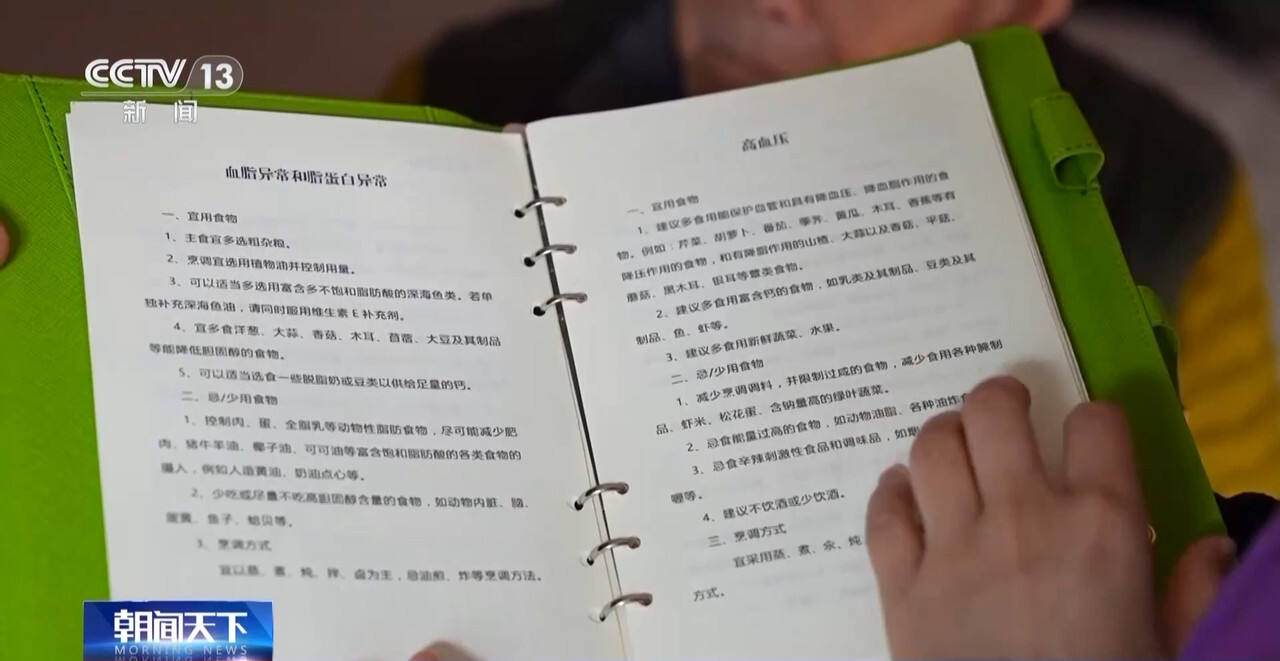 CCTV 13
新闻
血脂异常和脂蛋白异常
一、宜用食物
1、主食宜多选粗杂粮。
2、烹调宜选用植物油并控制用量。
3、可以适当多选用富含多不饱和脂肪酸的深海鱼类。若单
独补充深海鱼油，请同时服用维生素 E 补充剂。
4、宜多食洋葱、大蒜、香菇、木耳、苜蓿、大豆及其制品
等能降低胆固醇的食物。
5、可以适当选食一些脱脂奶或豆类以供给足量的钙。
二、忌/少用食物
1、控制肉、蛋、全脂乳等动物性脂肪食物，尽可能减少肥
肉、猪牛羊油、椰子油、可可油等富含饱和脂肪酸的各类食物的
摄入，例如人造黄油、奶油点心等。
2、少吃或尽量不吃高胆固醇含量的食物，如动物内脏、脑、
蛋黄、鱼子、鲍贝等。
3、烹调方式
宜以蒸、煮、炖、拌、卤为主，忌油煎、炸等烹调方法。
高血压
一、宜用食物
1、建议多食用能保护血管和具有降血压、降血脂作用的食
物。例如：芹菜、胡萝卜、番茄、荸荠、黄瓜、木耳、香蕉等有
降压作用的食物，和有降脂作用的山楂、大蒜以及香菇、平菇、
蘑菇、黑木耳、银耳等蕈类食物。
2、建议多食用富含钙的食物，如乳类及其制品、豆类及其
制品、鱼、虾等。
3、建议多食用新鲜蔬菜、水果。
二、忌/少用食物
1、减少烹调调料，并限制过咸的食物，减少食用各种腌制
品、虾米、松花蛋、含钠量高的绿叶蔬菜。
2、忌食能量过高的食物，如动物油脂、各种油炸
3、忌食辛辣刺激性食品和调味品，如
喱等。
4、建议不饮酒或少饮酒。
三、烹调方式
宜采用蒸、煮、汆、炖
方式。
朝闻天下
MORNING NEWS